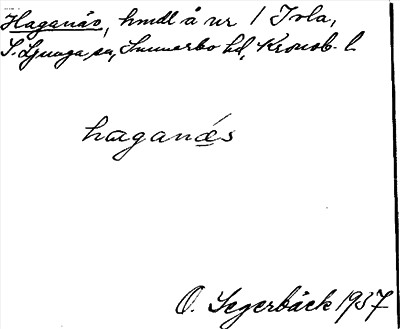 Haganäs, hmdl å nr 1 Tola,
S. Ljunga sn, Sunnerbo hd, Kronob. l.
haganäs
O. Segerbäck 1937